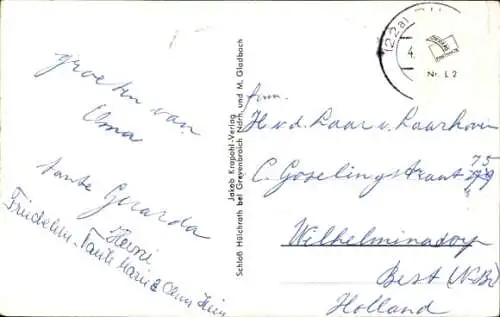 groeten van
Oma
tante Gerarda
Heini
Friedelm. Tante Marie & Oma Hein
Jakob Krapohl-Verlag
Schloß Hülchrath bei Grevenbroich Ndrh. und M. Gladbach
(22a)
4.
Nr. L 2
Fam.
H. v.d. Laar v. Laarhoven
C. Goselingstraat 75
Wilhelminadorp
Best (N-Br)
Holland